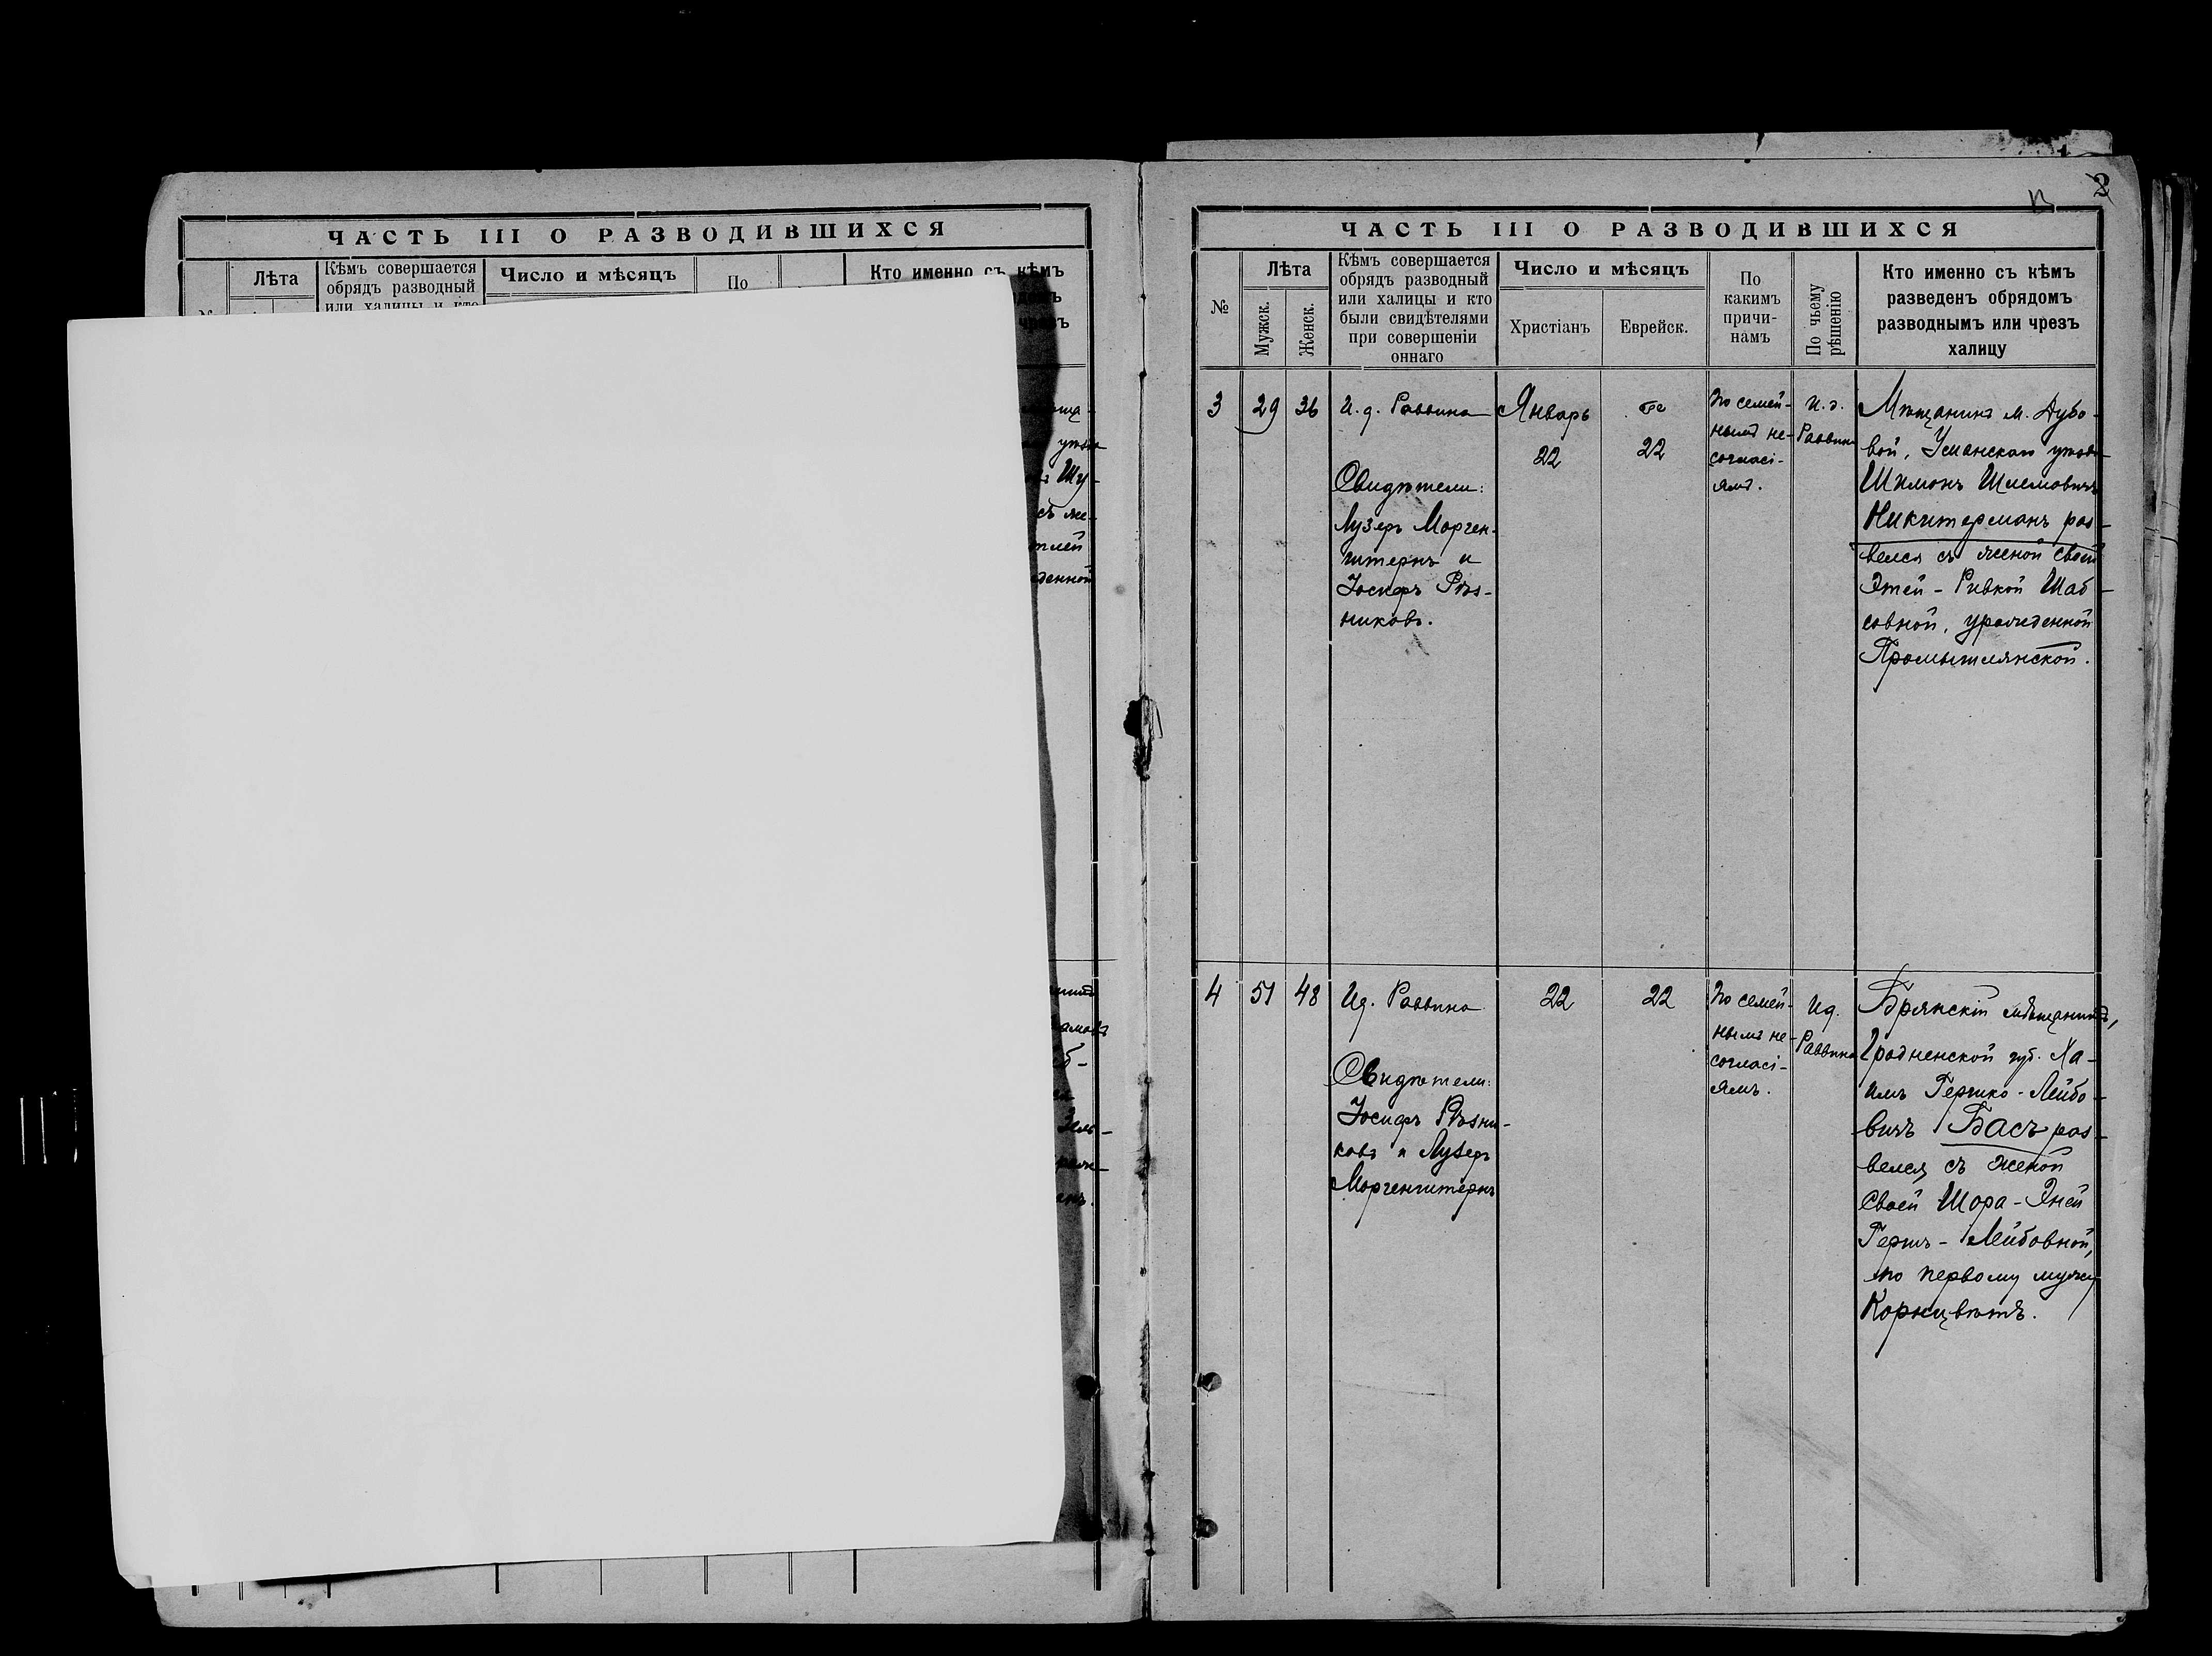 ЧАСТЬ III О РАЗВОДИВШИХСЯ
Лѣта
Кѣмъ совершается
обрядъ разводный
или халицы и кто
Число и мѣсяцъ
По
Кто именно съ кѣмъ
чрезъ
уѣзда
Шу-
съ же-
денной
Зель-
2
ЧАСТЬ III О РАЗВОДИВШИХСЯ
№
Лѣта
Мужск.
Женск.
Кѣмъ совершается
обрядъ разводный
или халицы и кто
были свидѣтелями
при совершеніи
оннаго
Число и мѣсяцъ
Христіанъ
Еврейск.
По
какимъ
причи-
намъ
По чьему
рѣшенію
Кто именно съ кѣмъ
разведенъ обрядомъ
разводнымъ или чрезъ
халицу
3
29
36
И. д. Раввина
Свидѣтели:
Лузеръ Морген-
штернъ и
Іосифъ Рѣз-
никовъ.
Январь
22
22
По семей-
нымъ не-
согласі-
ямъ.
И. д.
Раввина
Мѣщанинъ м. Дубо-
вой, Уманскаго уѣзда
Шимонъ Шлемовичъ
Никитерманъ раз-
велся съ женой своей
Этей-Ривкой Шаб-
совной, урожденной
Промышлянской.
4
51
48
Ид. Раввина
Свидѣтели:
Іосифъ Рѣзни-
ковъ и Лузеръ
Моргенштернъ
22
22
По семей-
нымъ не-
согласі-
ямъ.
Ид.
Раввина
Брянскій мѣщанинъ,
Гродненской губ. Ха-
имъ Гершко-Лейбо-
вичъ Басъ раз-
велся съ женой
своей Шора-Эней
Гершъ-Лейбовной,
по первому мужу
Корнцвѣтъ.